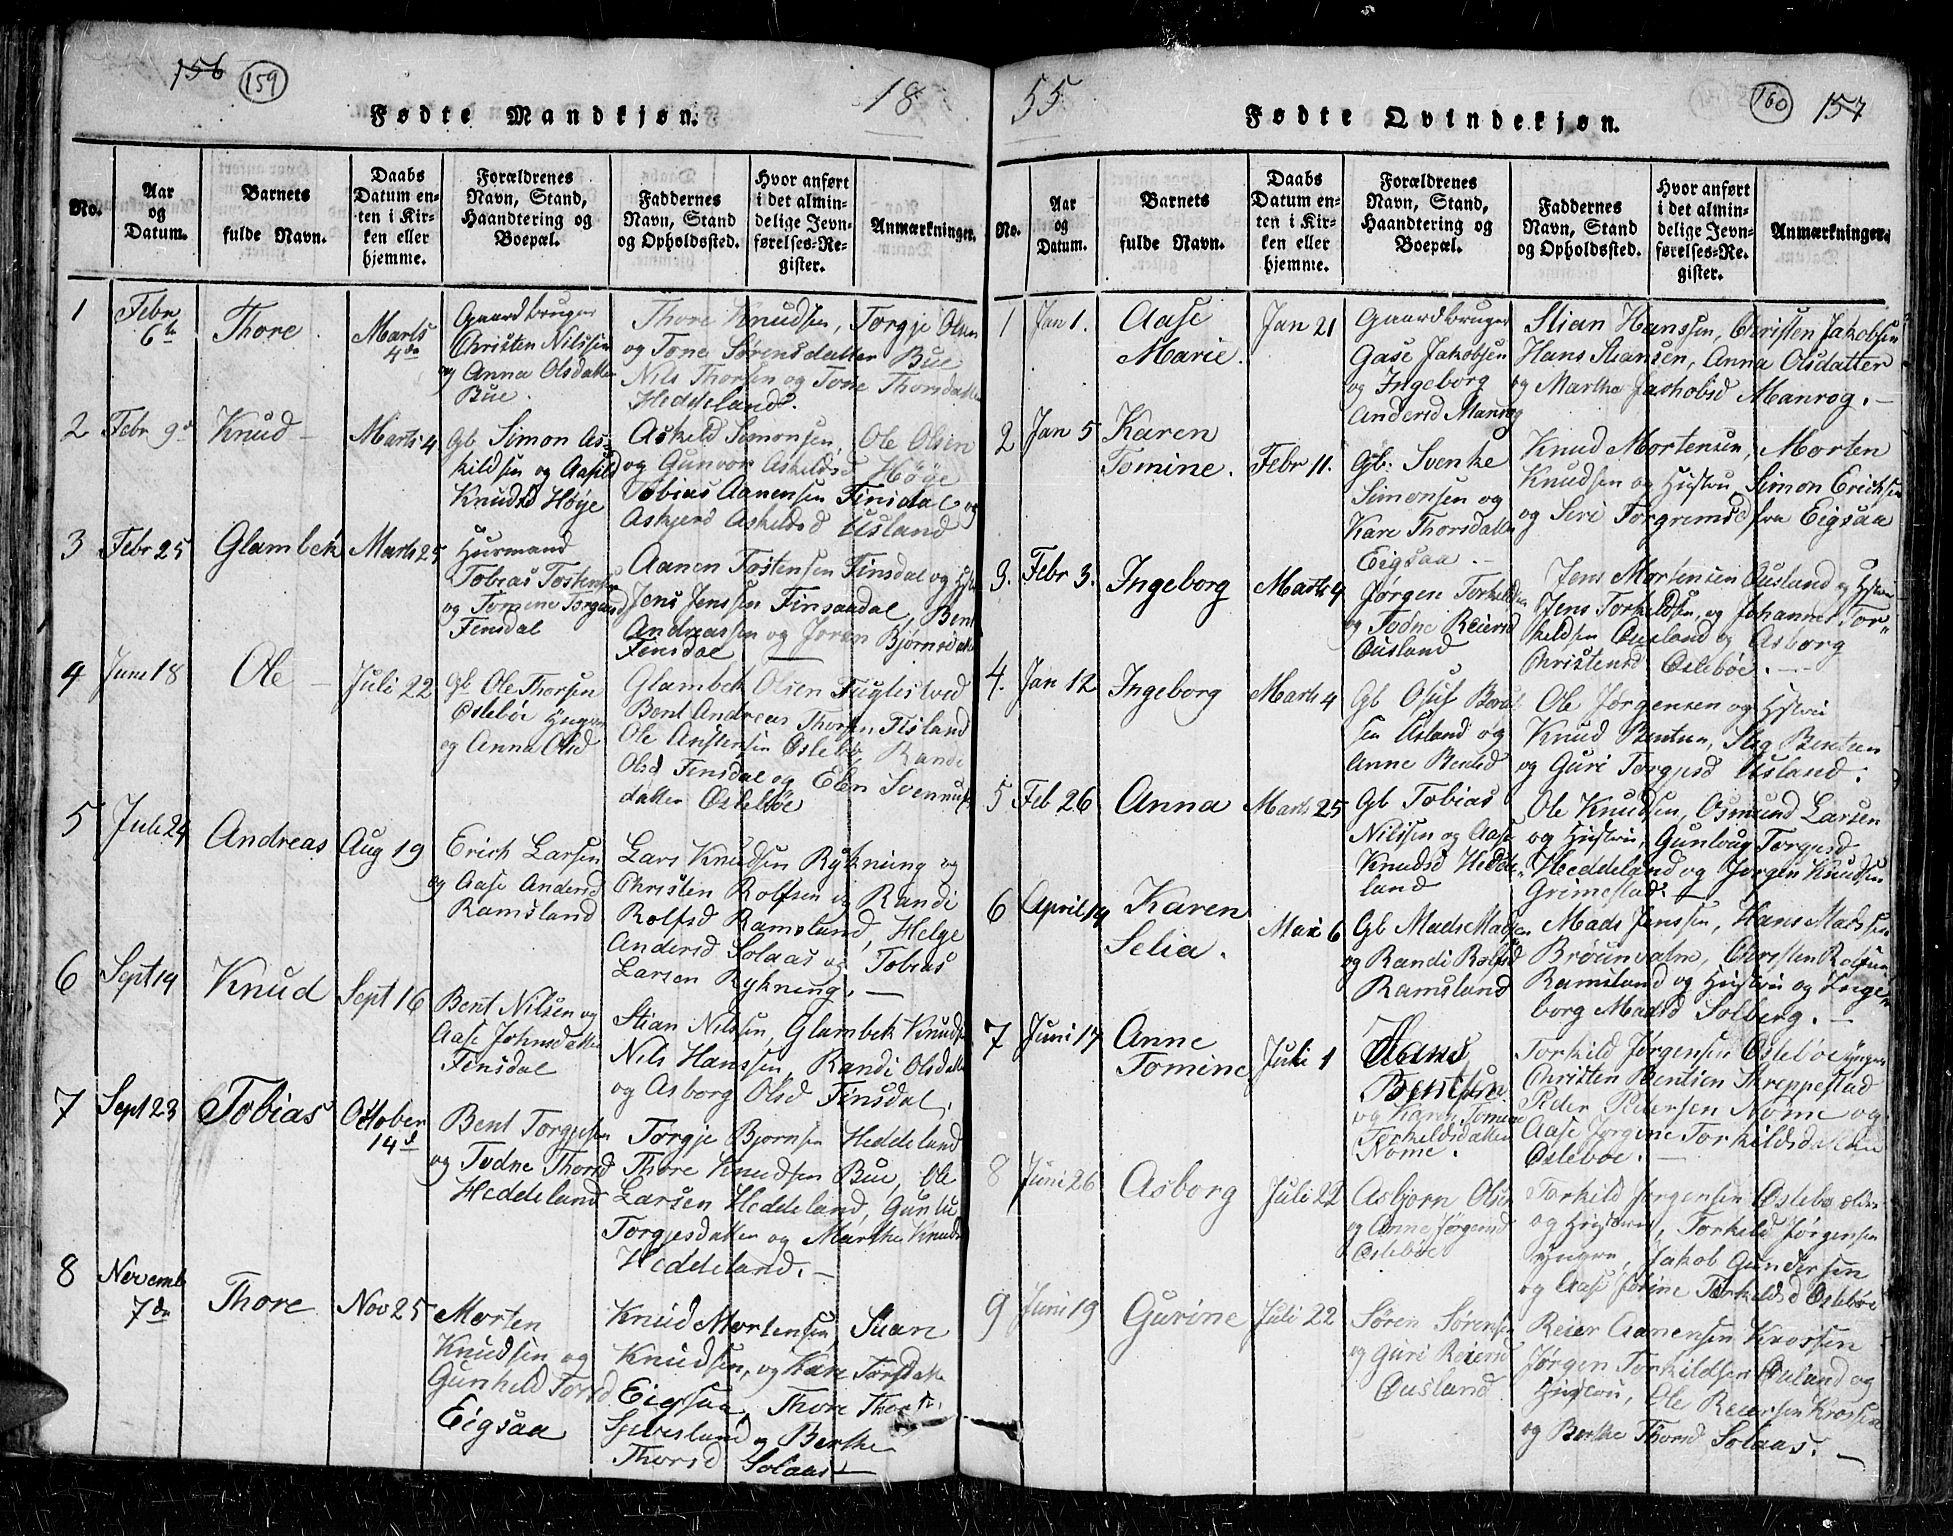 156 (159) 18
Fødte Mandkjøn.
No.
Aar
og
Datum.
Barnets
fulde Navn.
Daabs
Datum en-
ten i Kir-
ken eller
hjemme.
Forældrenes
Navn, Stand,
Haandtering og
Boepæl.
Faddernes
Navn, Stand
og Opholdssted.
Hvor anført
i det almin-
delige Jevn-
førelses-Re-
gister.
Anmærkninger.
1
Febr
6te
Thore
Marts
4de
Gaardbruger
Christen Nilssen
og Anna Olsdatter
Bue.
Thore Knudsen, Torgje Olsen
og Tone Sørensdatter Bue
Nils Thorsen og Tone Thorsdatter
Heddeland.
2
Febr 9de
Knud
Marts 4
Gb Simon As-
kildsen og Aasild
Knudsd Høye
Askild Simonsen, Ole Olsen
og Gunvor Askildsd Høye
Tobias Aanensen Finsdal og
Askjerd Askildsd Usland
3
Febr 25
Glambek
Marts 25
Huusmand
Tobias Tostensen
og Tomine Torgiusd
Finsdal
Aanen Tostensen Finsdal og Hstru
Jens Jenssen Finsaadal, Bent
Andreassen og Joran Bjørnsdatter
Finsdal
4
Juni 18
Ole
Juli 22
Gb Ole Thorsen
Oslebøe Yngre
og Anna Olsd
Glambek Olsen Fuglestved
Bent Andreas Thorsen Fisland
Ole Anstensen Oslebø, Randi
Olsd Finsdal og Elen Svennungs-
datter Oslebøe
5
Juli 24
Andreas
Aug 19
Erich Larsen
og Aase Andersd
Ramsland
Lars Knudsen Rykning og
Christen Rolfsen og Randi
Rolfsd Ramsland, Helge
Andersd Solaas og Tobias
Larsen Rykning.
6
Sept 19
Knud
Sept 16
Bent Nilsen og
Aase Johnsdatter
Finsdal
Stian Nilssen, Glambek Knudsen
Nils Hanssen, Randi Olsdatter
og Asborg Olsd Finsdal.
7
Sept 23
Tobias
October
14d
Bent Torgjusen
og Todne Thorsd
Heddeland
Torgje Bjornsen Heddeland
Thore Knudsen Bue, Ole
Larsen Heddeland, Gunlu
Torgjesdatter og Marthe Knudsd
Heddeland.
8
Novemb
7de
Thore
Nov 25
Morten
Knudsen og
Gunhild Torsd
Eigsaa
Knud Mortensen, Suan
Knudsen, og Kare Torsdatter
Eigsaa, Thore Thorsen
Sjevesland og Berthe
Thorsd Solaas
55 (160) 157
Fødte Qvindekjøn.
No.
Aar
og
Datum.
Barnets
fulde Navn.
Daabs
Datum en-
ten i Kir-
ken eller
hjemme.
Forældrenes
Navn, Stand,
Haandtering og
Boepæl.
Faddernes
Navn, Stand
og Opholdssted.
Hvor anført
i det almin-
delige Jevn-
førelses-Re-
gister.
Anmærkninger.
1
Jan 1.
Aase
Marie.
Jan 21
Gaardbruger
Gase Jakobsen
og Ingeborg
Andersd Manrog
Stian Hanssen, Christen Jakobsen
Hans Stiansen, Anna Olsdatter
og Marthe Jachobsd Manrog.
2
Jan 5
Karen
Tomine.
Febr 11.
Gb: Svenke
Simonsen og
Kare Thorsdatter
Eigsaa
Knud Mortensen, Morten
Knudsen og Hustru, Simon Erichsen
og Seri Torgrimsd fra Eigsaa
3.
Febr 3.
Ingeborg
Marts 4
Jørgen Torkildsen
og Todne Reiersd
Ousland
Jens Mortensen Ousland og Hstru
Jens Torkildsen, og Johannes Tor-
kildsen Ousland og Asborg
Christensd Oslebøe.
4.
Jan 12
Ingeborg
Marts 4
Gb Osuf Bend-
sen Usland og
Anne Bentsd
Ole Jørgensen og Hstru
Knud Bentsen, Stig Bentsen
og Guri Torgjusd Usland.
5
Feb 26
Anna
Marts 25
Gb Tobias
Nilssen og Aase
Knudsd Hedde-
land
Ole Knudsen, Osmund Larsen
og Hustru, Gunloug Torgusd
Heddeland og Jørgen Knudsen
Grimestad.
6
April 19
Karen
Selia.
Mai 6
Gb Mads Madsen
og Randi Rolfsd
Ramsland
Mads Jenssen, Hans Madssen
Brøunvalm, Christen Rolfsen
Ramsland og Hustru og Inge-
borg Madsd Solberg.
7
Juni 17
Anne
Tomine
Juli 1
Hans
Bentsen
og Karen Tomine
Torkildsdatter
Nome.
Torkild Jørgensen Oslebøe Yngre
Christen Bentsen Skreppestad
Peder Pedersen Nome og
Aase Jørgine Torkildsdatter
Oslebøe.
8
Juni 26
Asborg
Juli 22
Asbjørn Olsen
og Anne Jørgensd
Oslebøe
Torkild Jørgensen Oslebø ældre
og Hustru, Torkild Jørgensen
Yngre, Jakob Gundersen
og Aase Jorine Torkildsd Oslebøe
9
Juni 19
Gurine
Juli 22
Søren Sørensen
og Guri Reiersd
Ousland
Reier Aanensen Krossen
Jørgen Torkildsen Ousland og
Hustru, Ole Reiersen Krossen
og Berthe Thorsd Solaas.